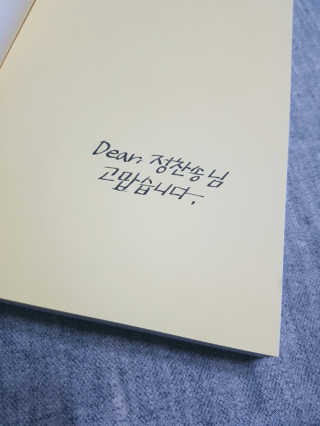 Dear, 정찬송 님
고맙습니다.